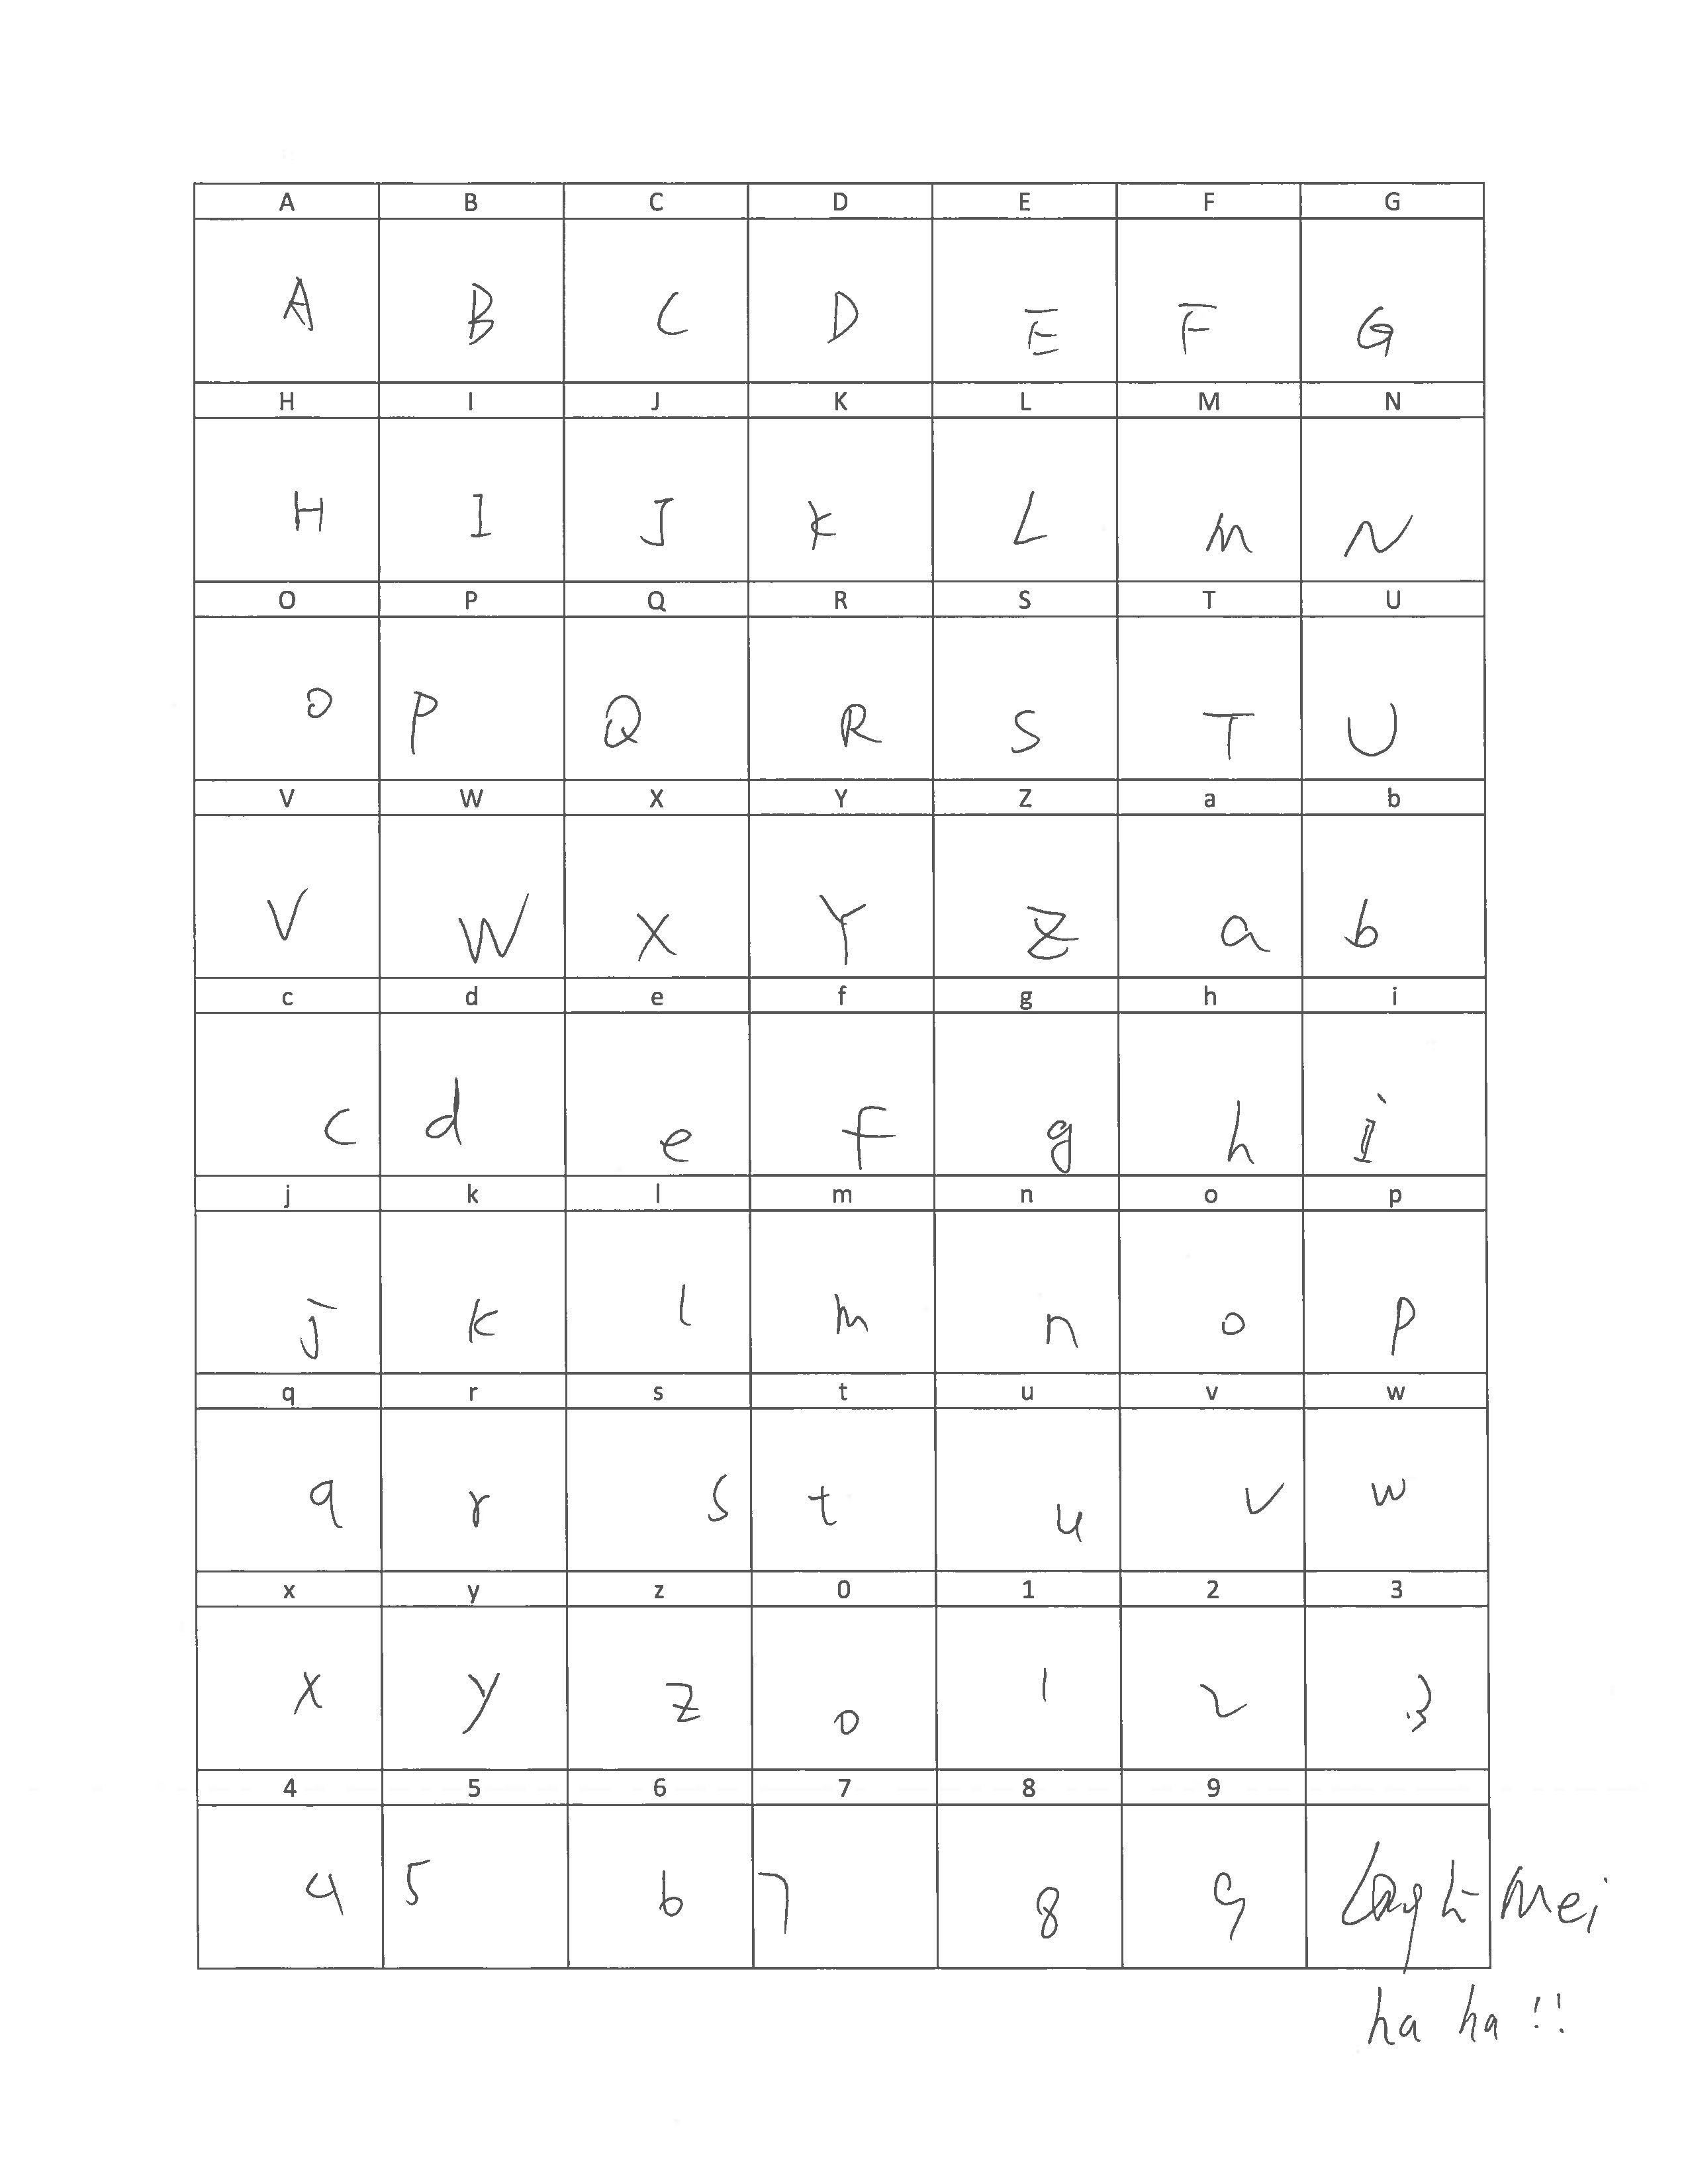 A B C D E F G
A B C D E F G
H I J K L M N
H I J K L M N
O P Q R S T U
O P Q R S T U
V W X Y Z a b
V W X Y Z a b
c d e f g h i
c d e f g h i
j k l m n o p
j k l m n o p
q r s t u v w
q r s t u v w
x y z 0 1 2 3
x y z 0 1 2 3
4 5 6 7 8 9
4 5 6 7 8 9 Mei
ha ha !!